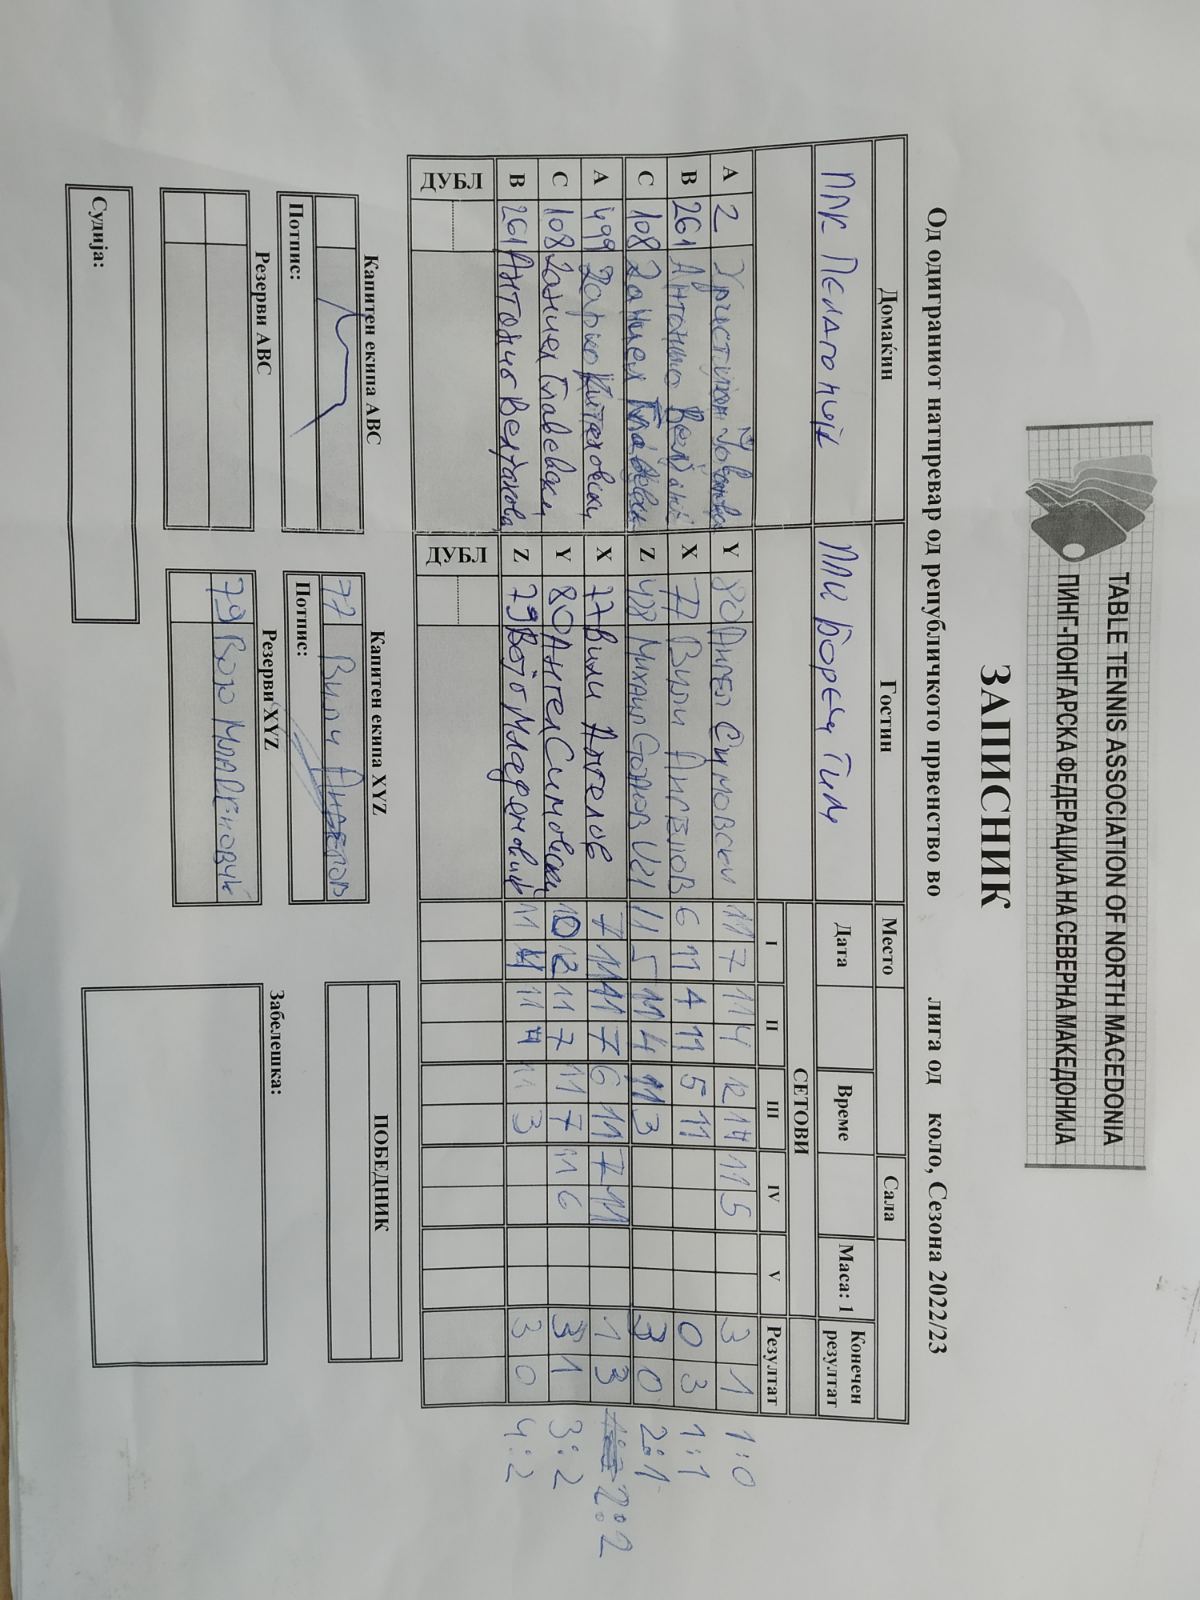 TABLE TENNIS ASSOCIATION OF NORTH MACEDONIA
ПИНГ-ПОНГАРСКА ФЕДЕРАЦИЈА НА СЕВЕРНА МАКЕДОНИЈА
ЗАПИСНИК
Од одиграниот натпревар од републичкото првенство во лига од коло, Сезона 2022/23
Домаќин Гостин Место Сала
Дата Време Маса: 1 Конечен резултат
СЕТОВИ
I II III IV V Резултат
A 2 Y 80 Ангел Симовски 11 7 11 4 12 14 11 5 3 1 1:0
B 261 Антонио X 77 Вили Ангелов 6 11 4 11 5 11 0 3 1:1
C 108 Даниел Z 478 Михаил 11 5 11 4 11 3 3 0 2:1
A 499 Дарко X 77 Вили Ангелов 7 11 11 7 6 11 7 11 1 3 2:2
C 108 Даниел Главевски Y 80 Ангел Симовски 10 12 11 7 11 7 11 6 3 1 3:2
B 261 Антонио Z 79 Војо Младеновиќ 11 4 11 4 11 3 3 0 4:2
ДУБЛ ДУБЛ
Капитен екипа ABC Капитен екипа XYZ ПОБЕДНИК
77 Вили Ангелов
Потпис: Потпис:
Резерви ABC Резерви XYZ Забелешка:
79 Војо Младеновиќ
Судија: